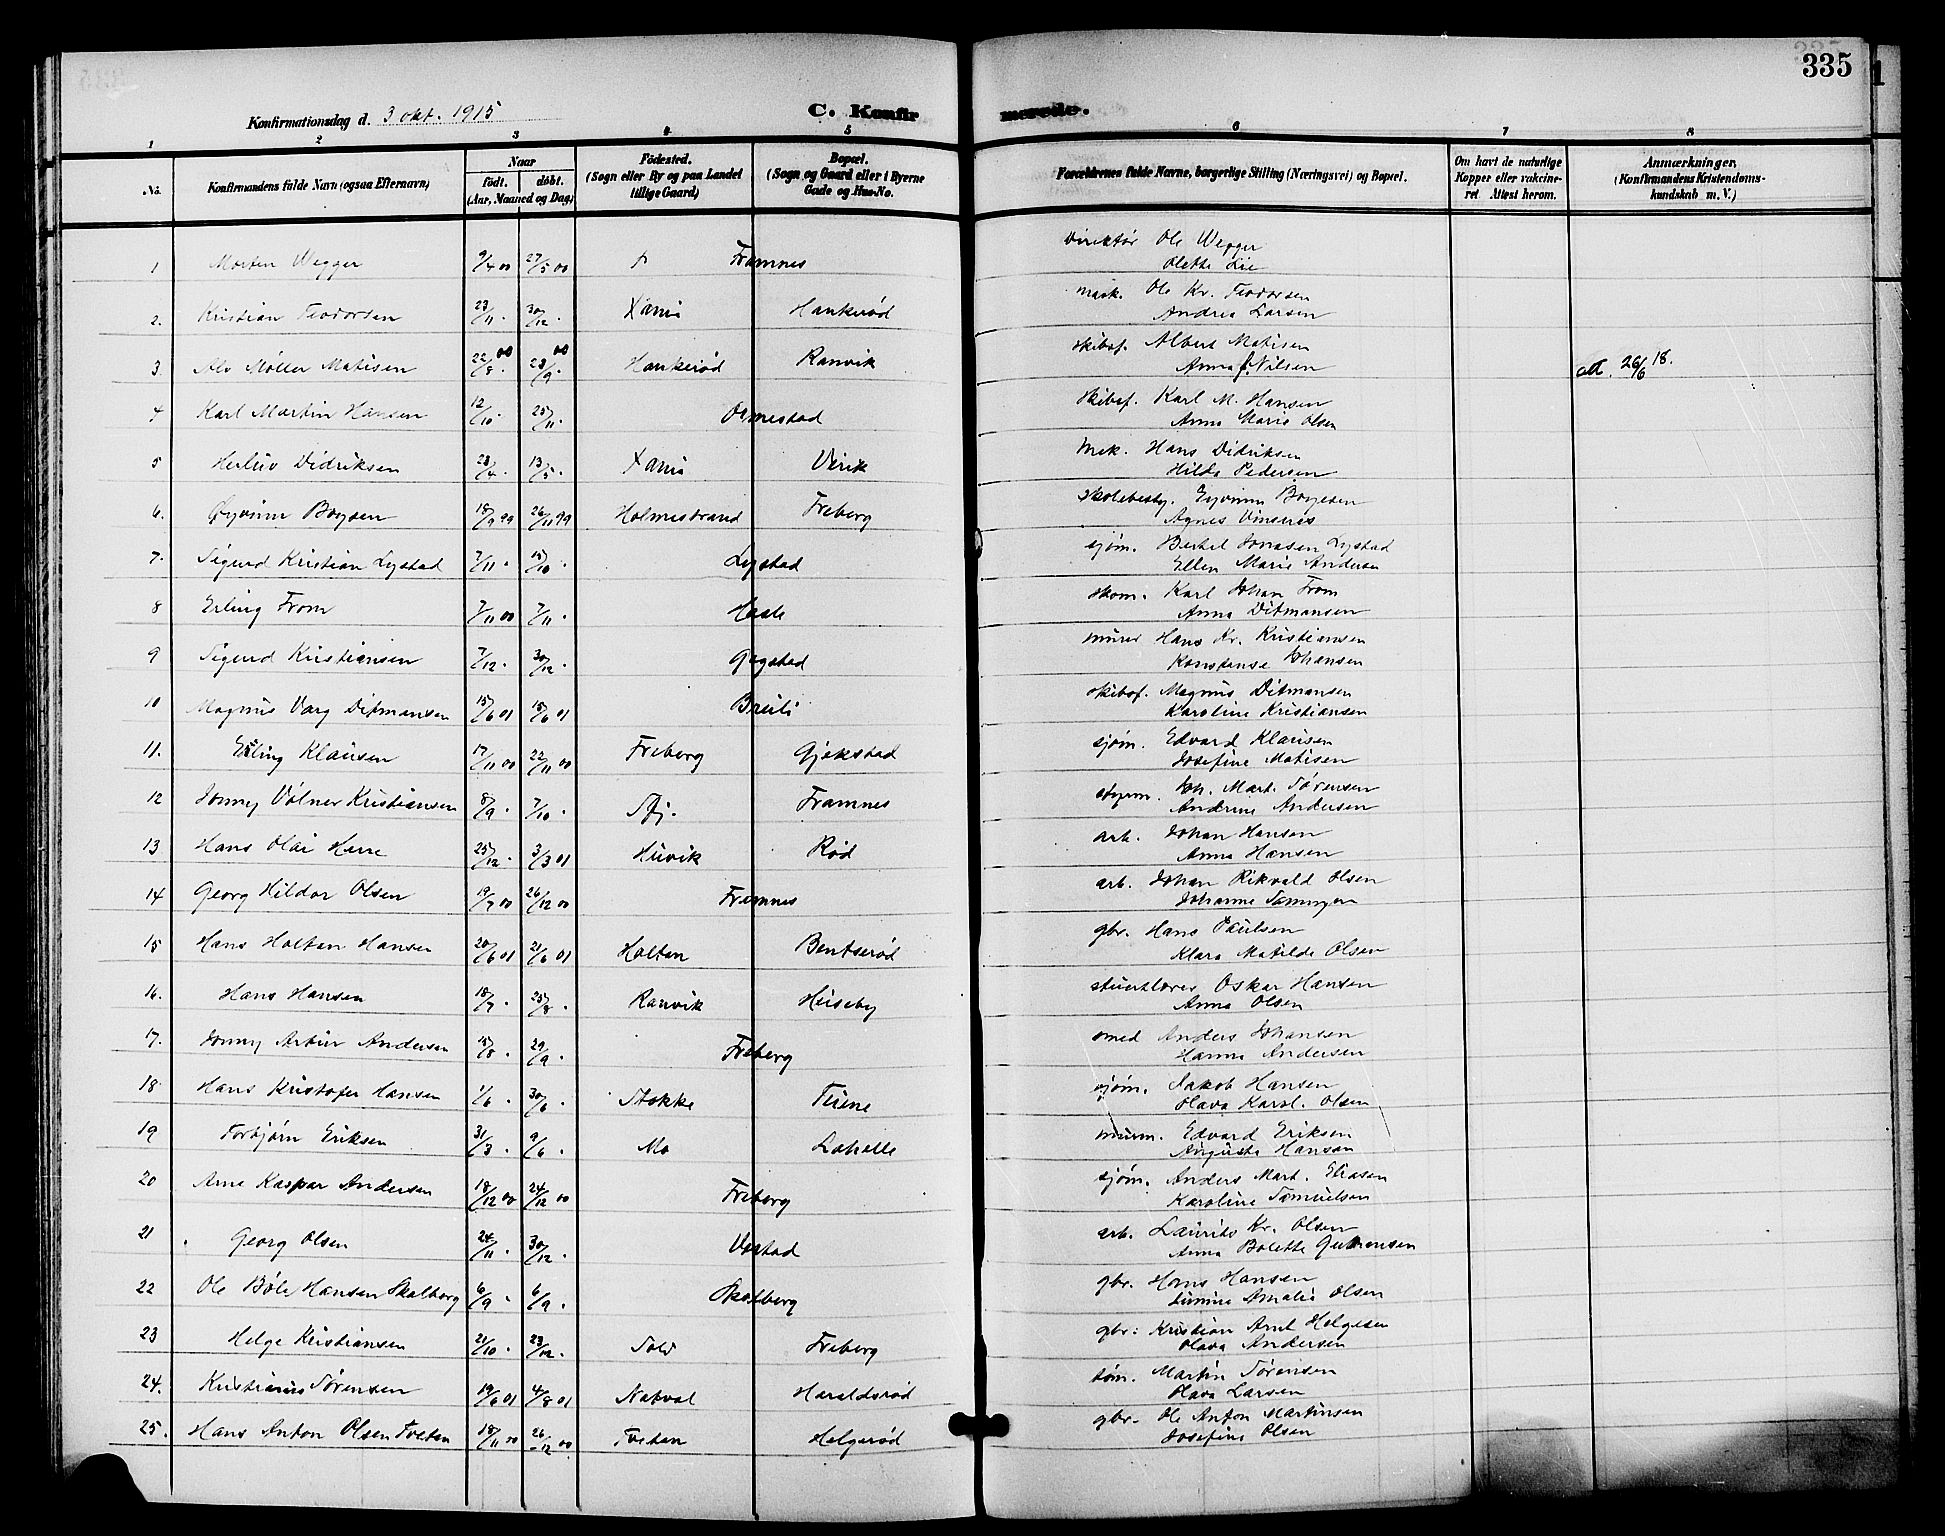 335
Konfirmationsdag d. 3 okt. 1915
C. Konfirmerede.
1 2 3 4 5 6 7 8
No.
Konfirmandens fulde Navn (ogsaa Efternavn)
Naar
født. døbt.
(Aar, Maaned og Dag)
Födested.
(Sogn eller By og paa Landet
tillige Gaard)
Bopæl.
(Sogn og Gaard eller i Byerne
Gade og Hus-No.
Forældrenes fulde Navne, borgerlige Stilling (Næringsvei) og Bopæl.
Om havt de naturlige
Kopper eller vakcine-
ret Attest herom.
Anmærkninger.
(Konfirmandens Kristendoms-
kundskab m. V.)
1 Morten Wegger 9/4 00 27/5 00 Framnes Direktør Ole Wegger
Olette Lie
2. Kristian Teodorsen 23/11 . 30/12 . Xania Haukerød mask. Ole Kr. Teodorsen
Andrea Larsen
3. Alv Møller Matisen 22/8 00 23/9 00 Haukerød Ranvik skibsf. Albert Matisen
Anna f. Nilsen 26/6 18.
4 Karl Martin Hansen 12/10 . 25/11 . Ormestad skibsf. Karl M. Hansen
Anna Marie Olsen
5 Herluv Didriksen 23/4 . 13/5 . Xania Virik mek. Hans Didriksen
Hilda Pedersen
6. Øyvinn Boysen 18/9 99 26/11 99 Holmestrand Freberg skolebesty. Eyvinn Boyesen
Agnes
7. Sigurd Kristian Lystad 7/11 . 15/10 . Lystad sjøm. Bertel Jonasen Lystad
Ellen Marie Andersen
8 Erling From 7/11 00 7/11 . Hasle skom. Karl Johan From
Anna Ditmansen
9 Sigurd Kristiansen 7/12 . 30/12 . Gogstad murer Hans Kr. Kristiansen
Konstanse Johansen
10 Magnus Varg Ditmansen 15/6 01 18/6 01 Breili skibsf. Magnus Ditmansen
Karoline Kristiansen
11. Erling Klausen 17/11 00 22/11 00 Freberg Gjekstad sjøm. Edvard Klausen
Josefine Matisen
12 Jonny Volner Kristiansen 8/9 . 7/10 . Sfj. Framnes styrm. Joh. Mart. Sørensen
Andrine Andersen
13 Hans Olai Herre 25/12 . 3/3 01 Huvik Rød arb. Johan Hansen
Anna Hansen
14 Georg Hildor Olsen 19/7 00 26/12 00 Framnes arb. Johan Rikvald Olsen
Johanne
15 Hans Holtan Hansen 20/6 01 21/6 01 Holtan Bentserød gbr. Hans Paulsen
Klara Matilde Olsen
16. Hans Hansen 18/7 . 25/8 . Ranvik Huseby Oskar Hansen
Anna Olsen
17. Jonny Artur Andersen 15/8 . 29/9 . Freberg smed Anders Johansen
Hanna Andersen
18 Hans Kristofer Hansen 1/6 . 30/6 . Stokke Furne sjøm. Jakob Hansen
Olava Karol. Olsen
19 Torbjørn Eriksen 31/3 . 9/6 . Mo Lahelle murm. Edvard Eriksen
Augusta Hansen
20 Arne Kaspar Andersen 18/12 00 24/12 00 Freberg sjøm. Anders Mart. Eliasen
Karoline Samuelsen
21 Georg Olsen 24/11 . 30/12 . Vestad arb. Laurits Kr. Olsen
Anna Bolette
22 Ole Bøle Hansen Skalberg 6/9 . 6/9 . Skalberg gbr. Hans Hansen
Amalie Olsen
23 Helge Kristiansen 21/10 . 23/12 . Solv Freberg gbr: Kristian Arnt Helgesen
Olava Andersen
24. Kristianus Sørensen 19/6 01 4/8 01 Natval Haraldsrød tøm. Martin Sørensen
Olava Larsen
25. Hans Anton Olsen Tveten 18/11 00 26/12 00 Tveten Helgerød gbr. Ole Anton Martinsen
Josefine Olsen